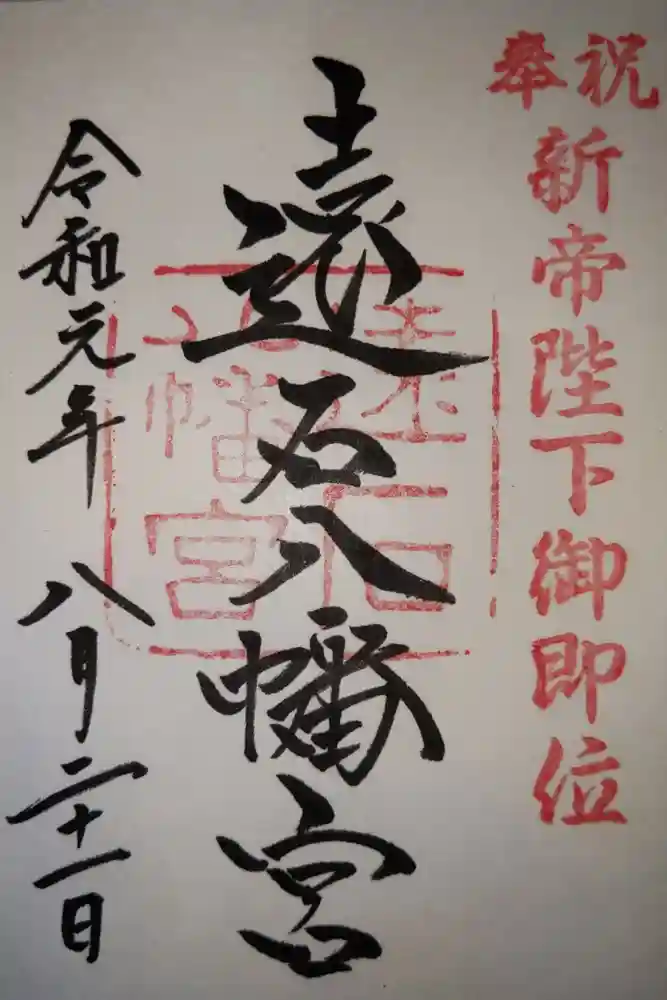 奉祝
新帝陛下御即位
遠石八幡宮
遠石
八幡宮
令和元年 八月二十一日